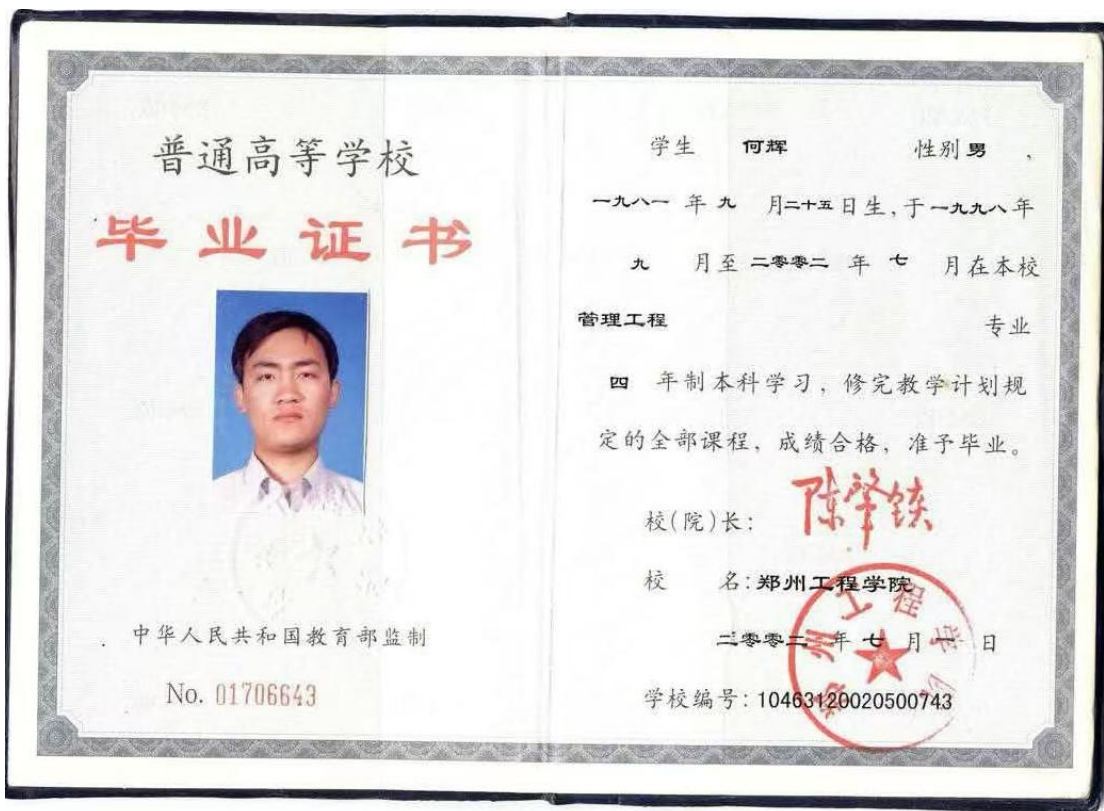 普通高等学校
毕业证书
中华人民共和国教育部监制
No. 01706643
学生 何辉 性别 男 ,
一九八一 年 九 月 二十五 日生,于 一九九八 年
九 月至 二零零二 年 七 月在本校
管理工程 专业
四 年制本科学习,修完教学计划规
定的全部课程,成绩合格,准予毕业。
校(院)长:
校 名:郑州工程学院
二零零二 年 七 月 一 日
学校编号:10463120020500743
郑州工程学院